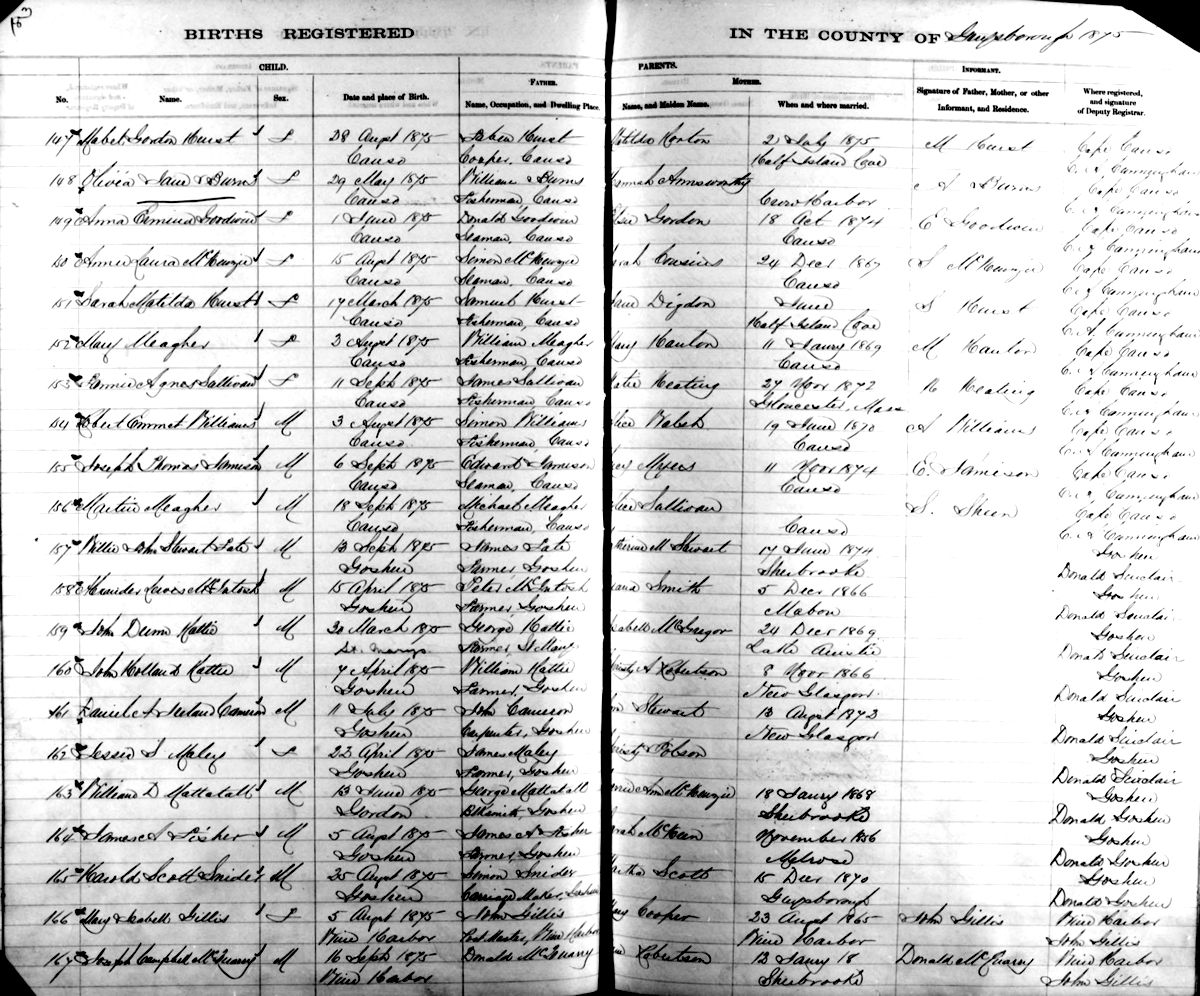 BIRTHS REGISTERED IN THE COUNTY OF Guysborough 1875
CHILD. PARENTS.
FATHER. MOTHER. INFORMANT.
No. Name. Sex. Date and place of Birth. Name, Occupation, and Dwelling Place. Name, and Maiden Name. When and where married. Signature of Father, Mother, or other Informant, and Residence. Where registered, and signature of Deputy Registrar.
147 Mabel Gordon Hurst F 28 Augst 1875 Hurst Horton 2 July 1875 M Hurst Cape Canso
Canso Cooper, Canso Half Island Cove Cunningham
148 Olivia Jane Burns F 29 May 1875 William Burns Armsworthy A Burns Cape Canso
Canso Fisherman, Canso Crow Harbor Cunningham
149 Anna Goodwin F 1 June 1875 Donald Goodwin Gordon 18 Oct 1874 E Goodwin Cape Canso
Canso Seaman, Canso Canso Cunningham
150 Annie Laura McKenzie F 15 Augst 1875 Simon McKenzie Cousins 24 Decr 1867 S McKenzie Cape Canso
Canso Seaman, Canso Canso Cunningham
151 Sarah Matilda Hurst F 17 March 1875 Samuel Hurst Digdon June S Hurst Cape Canso
Canso Fisherman, Canso Half Island Cove Cunningham
152 Mary Meagher F 3 Augst 1875 William Meagher Hanlon 11 Jany 1869 M Hanlon Cape Canso
Canso Fisherman, Canso Canso Cunningham
153 Fannie Agnes Sullivan F 11 Septr 1875 James Sullivan Keating 27 Novr 1872 Keating Cape Canso
Canso Fisherman Canso Gloucester, Mass Cunningham
154 Emmet Williams M 3 Augst 1875 Simon Williams Walsh 19 June 1870 A Williams Cape Canso
Canso Fisherman, Canso Canso Cunningham
155 Joseph Thomas Jamieson M 6 Septr 1875 Edward Jamieson Myers 11 Novr 1874 E Jamieson Cape Canso
Canso Seaman, Canso Canso Cunningham
156 Martin Meagher M 18 Septr 1875 Michael Meagher Sullivan S. Cape Canso
Canso Fisherman, Canso Canso Cunningham
157 Willie John Stewart Tate M 13 Septr 1875 James Tate M Stewart 17 June 1874 Goshen
Goshen Farmer Goshen Sherbrooke Donald Sinclair
158 McIntosh M 15 April 1875 Peter McIntosh Smith 5 Decr 1866 Goshen
Goshen Farmer Goshen Mabou Donald Sinclair
159 John Dunn Hattie M 20 March 1875 George Hattie McGregor 24 Decr 1869 Goshen
St Marys Farmer, St Marys Lake Donald Sinclair
160 John Holland Hattie M 7 April 1875 William Hattie A Robertson 8 Novr 1866 Goshen
Goshen Farmer, Goshen New Glasgow Donald Sinclair
161 Daniel A Cameron M 11 July 1875 John Cameron Stewart 13 Augst 1873 Goshen
Goshen Carpenter, Goshen New Glasgow Donald Sinclair
162 Jessie S Maley F 23 April 1875 James Maley Goshen
Goshen Farmer, Goshen Donald Sinclair
163 William D Mattatall M 13 June 1875 George Mattatall Ann McKenzie 18 Jany 1868 Goshen
Gordon Blksmith, Goshen Sherbrooke Donald Goshen
164 James A Fisher M 5 Augst 1875 James A Fisher McKeen November 1856 Goshen
Goshen Farmer, Goshen Melrose Donald Goshen
165 Harold Scott Snider M 25 Augst 1875 Simon Snider Scott 15 Decr 1870 Goshen
Goshen Carriage Maker, Goshen Guysborough Donald Goshen
166 Mary Isabell Gillis F 5 Augst 1875 John Gillis Cooper 23 Augst 1865 John Gillis Wine Harbor
Wine Harbor Post Master, Wine Harbor Wine Harbor John Gillis
167 Joseph Campbell McQuarry M 16 Septr 1875 Donald McQuarry Robertson 13 Jany 18 Donald McQuarry Wine Harbor
Wine Harbor Sherbrooke John Gillis